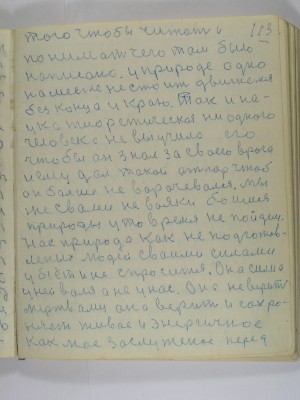 того чтобы читать и 113
понимат чего там было
написано. у природе одно
на месте не стоит движется
без конца и краю. Так и на-
ука теоретическая ни одного
человека не выучила его
чтобы он знал за своего врога
и ему дал такой отпор чтоб
он больше не ворочевался. мы
же с вами не вояки боимся
природы у то время не пойдем.
нас природа как не подготов-
леных людей своими силами
убьет и не спросится. Она сильна
у ней воля а не у нас. Она не верить
мертвому она верить и сохро-
няет живое и энергичное
как мое заслуженое перед